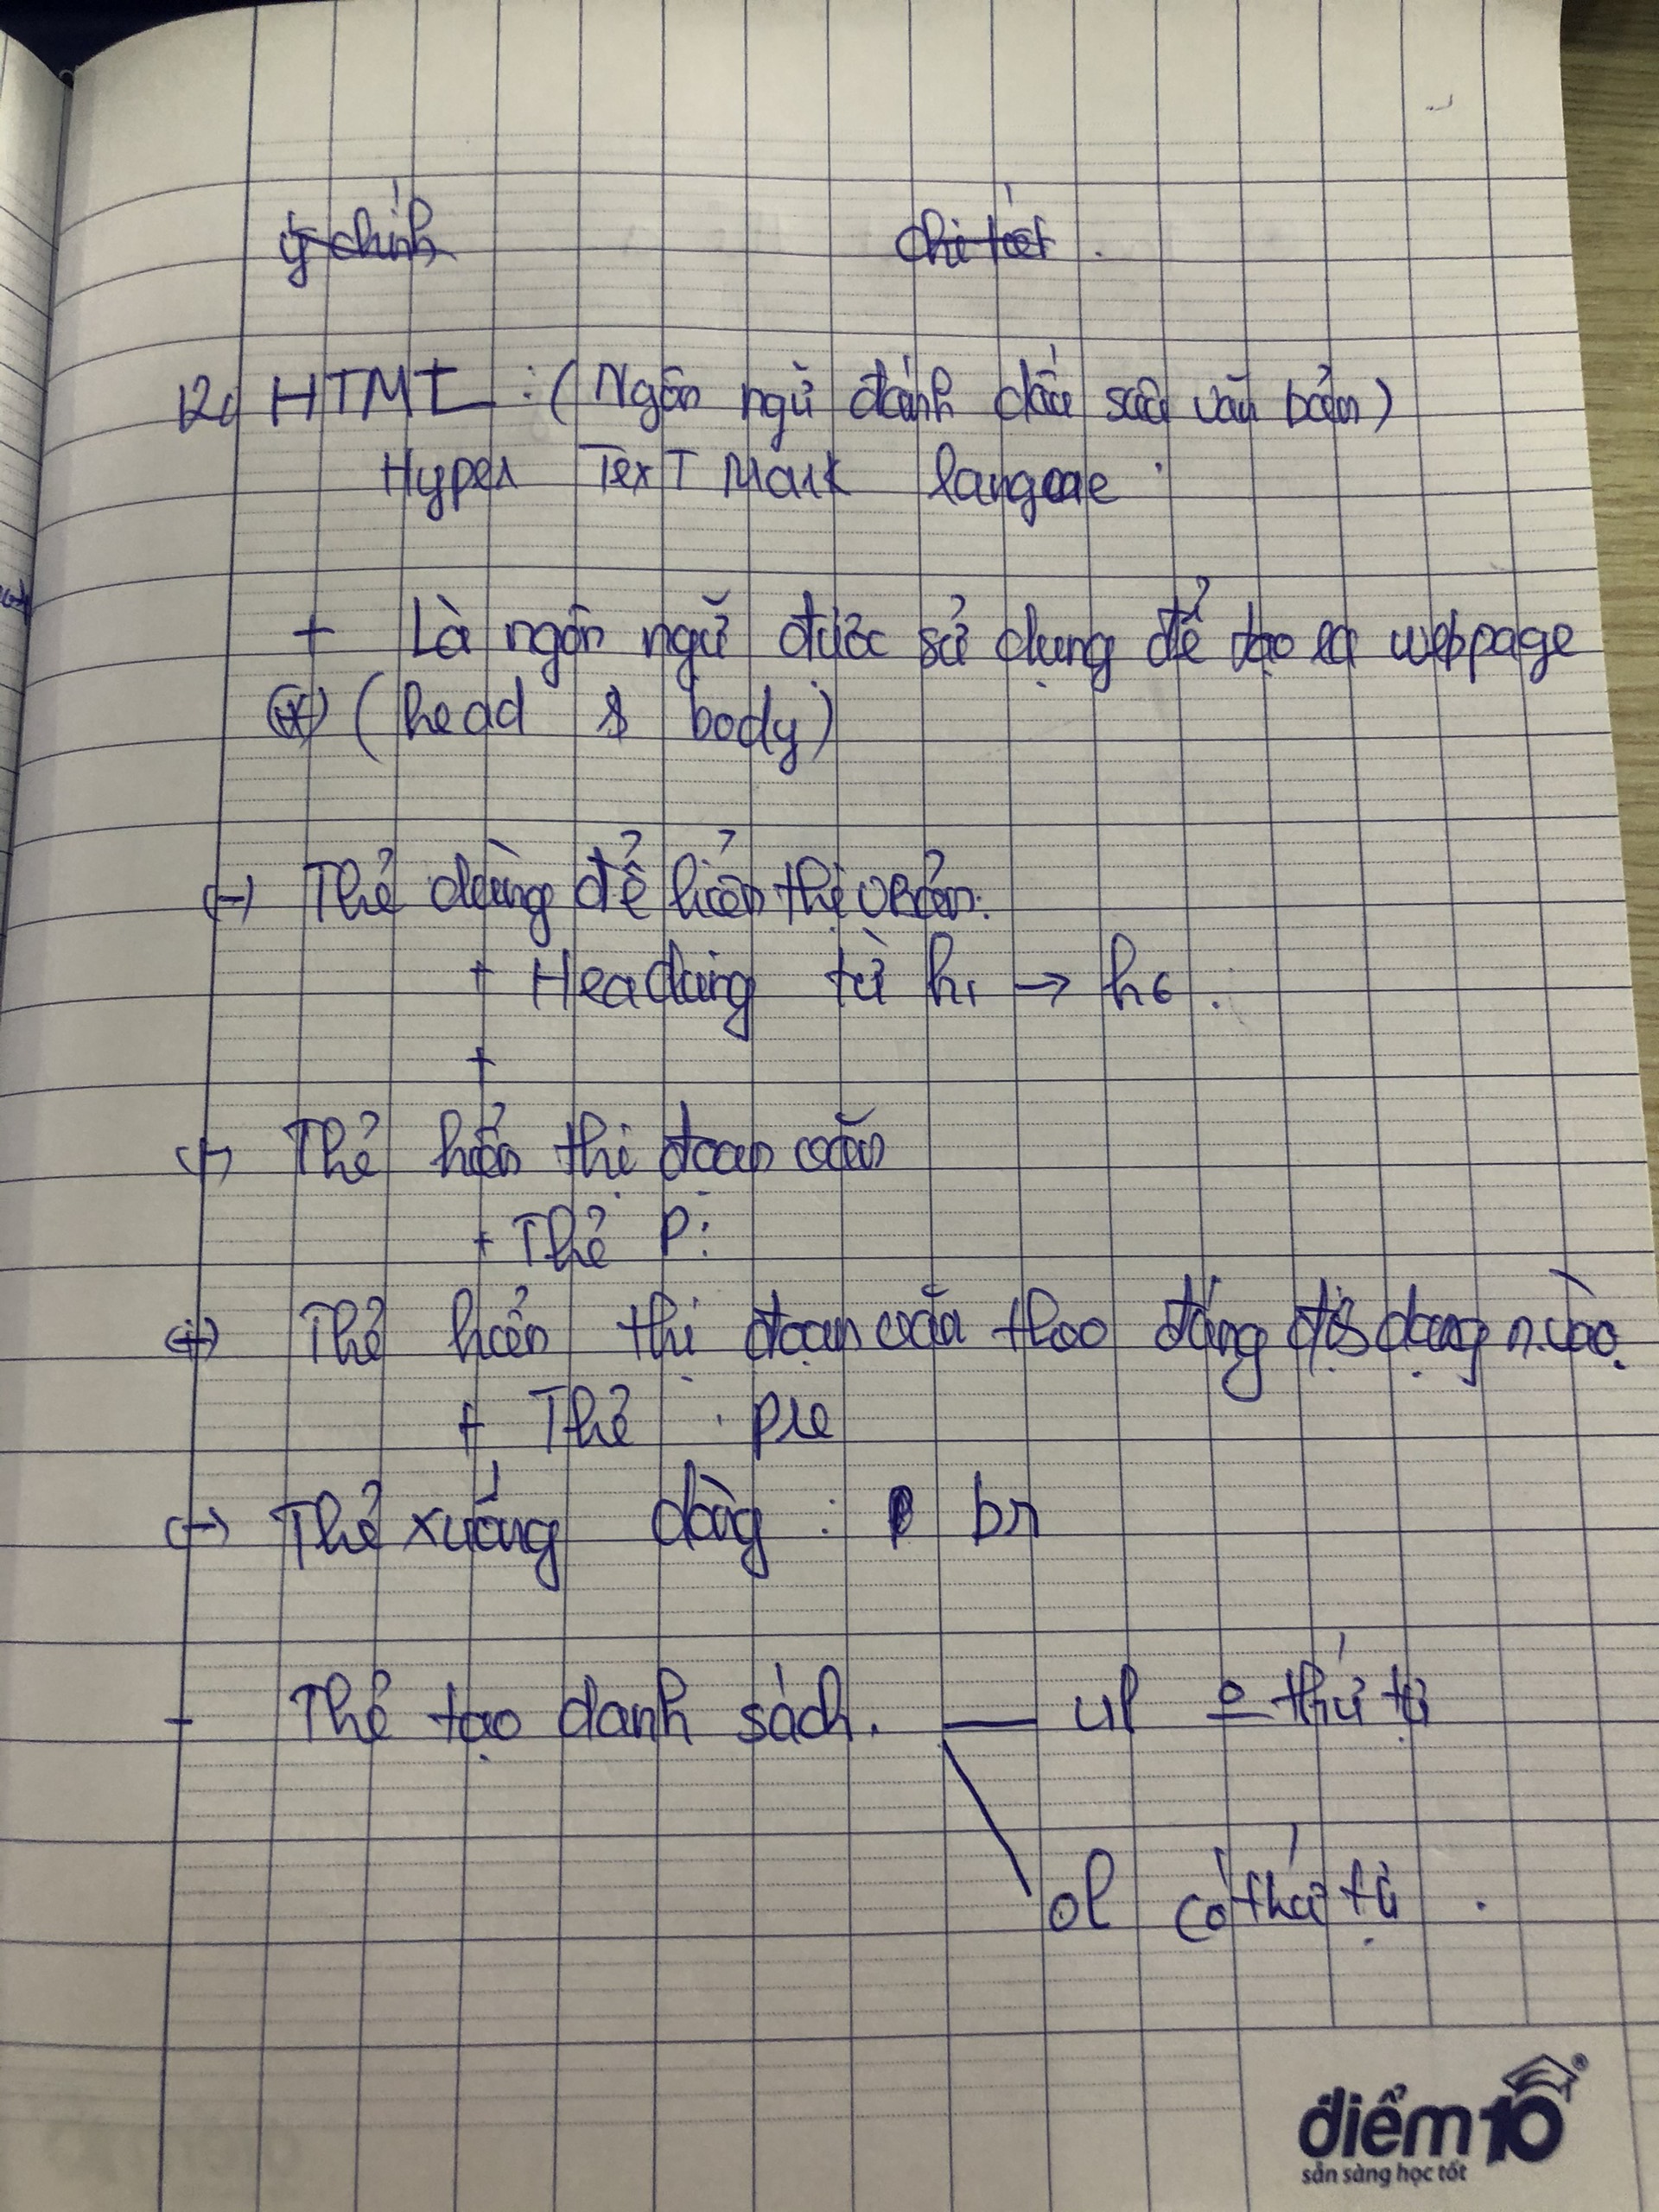 ý chính chi tiết.
HTML: (Ngôn ngữ đánh dấu siêu văn bản)
Hyper TexT Mark langeae
+ Là ngôn ngữ được sử dụng để tạo ra webpage
(head & body)
(-) Thẻ dùng để hiển thị vBản:
+ Heading từ h1 → h6.
+
(-) Thẻ hiển thị đoạn văn
+ Thẻ P:
(+) Thẻ hiển thị đoạn văn theo đúng dạng n.vào.
+ Thẻ pre
(-) Thẻ xuống dòng: br
- Thẻ tạo danh sách. — ul thứ tự
ol có thứ tự.
điểm10
sẵn sàng học tốt